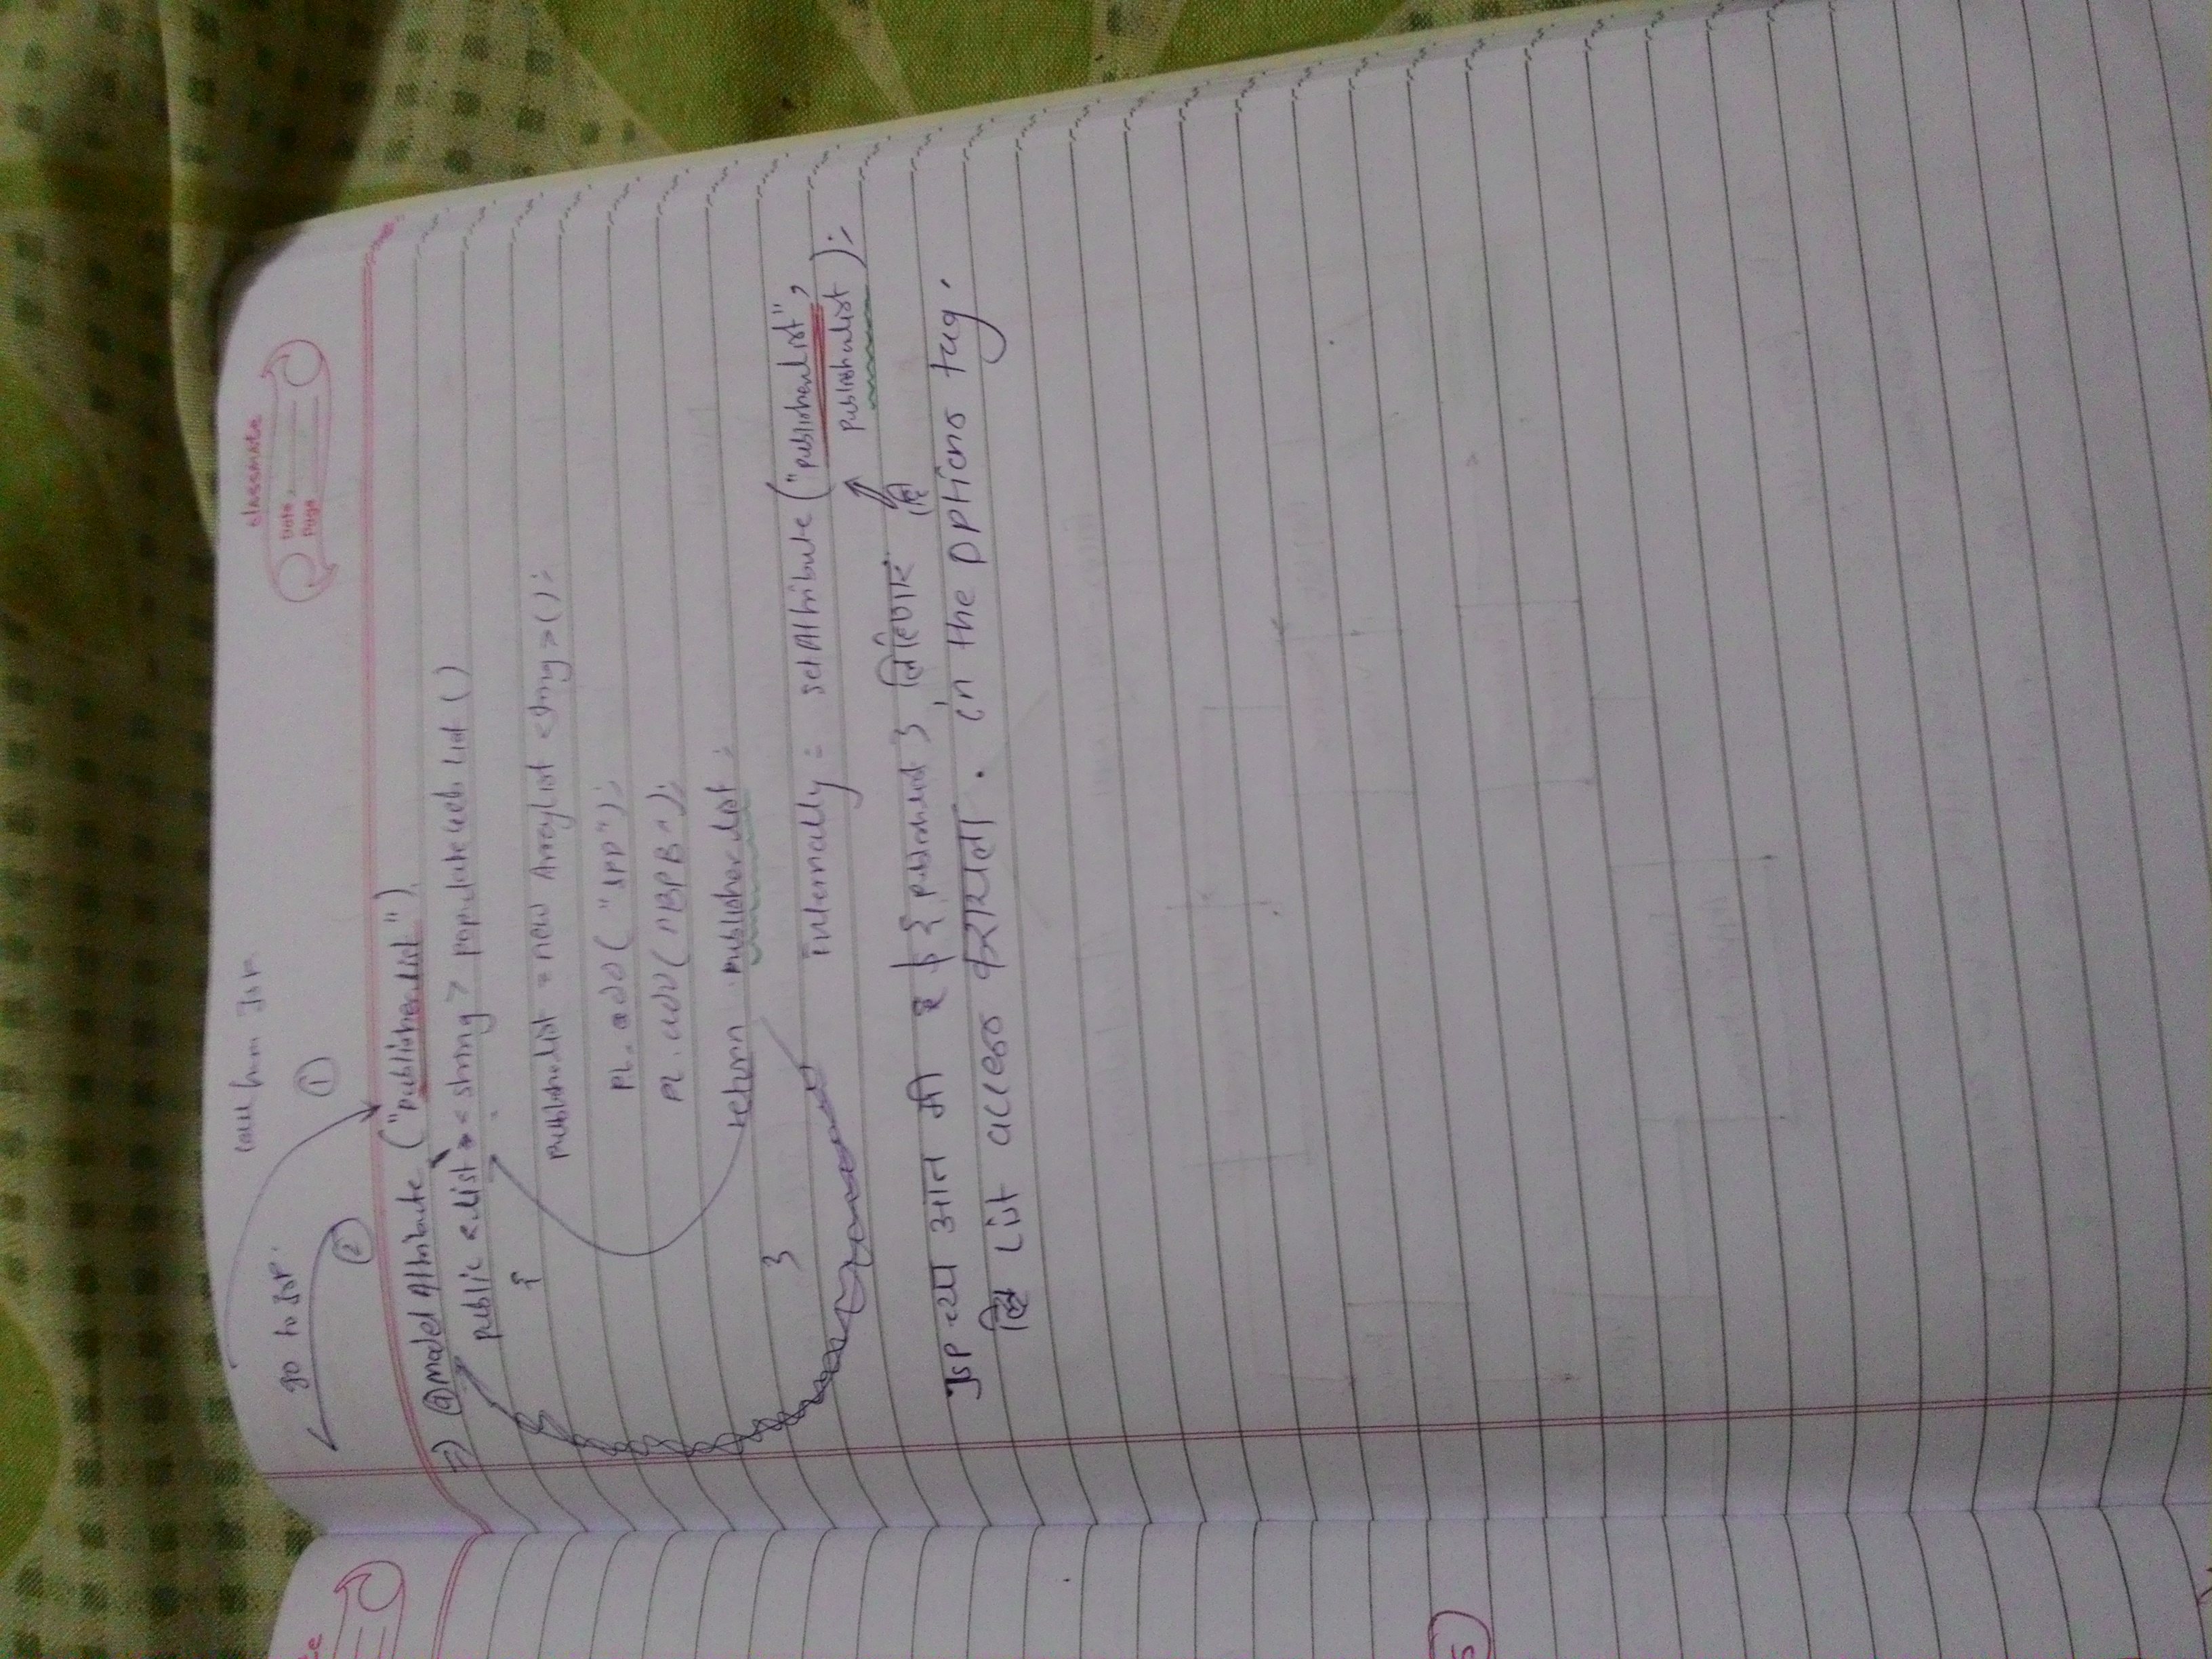 call from JSP
classmate
Date
Page
go to JSP.
①
②
=> @Model Attribute ("publisherList")
public <List> <string> populate List ()
{
publisherList = new ArrayList <String>();
PL.add( "SPD");
PL.add("BPB");
return publisherList ;
}
internally = setAttribute ("publisherList",
publisherList );
JSP च्या आत मी $ { publisherList } लिहिणार ही
List access करायला . in the options tag.